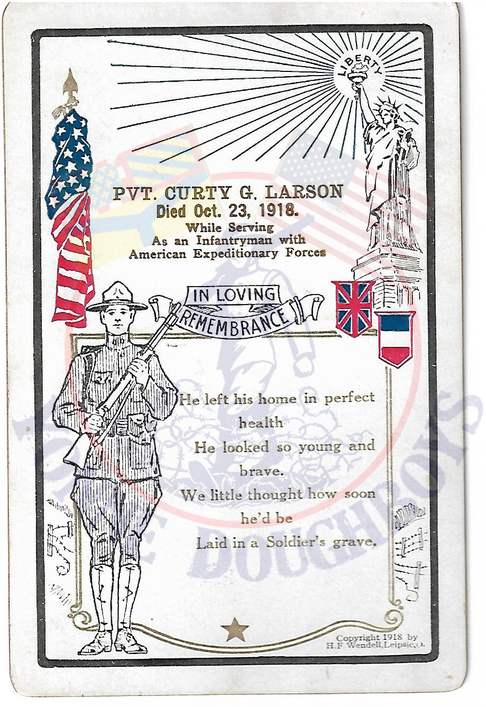 LIBERTY
PVT. CURTY G. LARSON
Died Oct. 23, 1918.
While Serving
As an Infantryman with
American Expeditionary Forces
IN LOVING
REMEMBRANCE
He left his home in perfect
health
He looked so young and
brave.
We little thought how soon
he'd be
Laid in a Soldier's grave.
DOUGHBOYS
Copyright 1918 by
H.F Wendell, Leipsic, O.